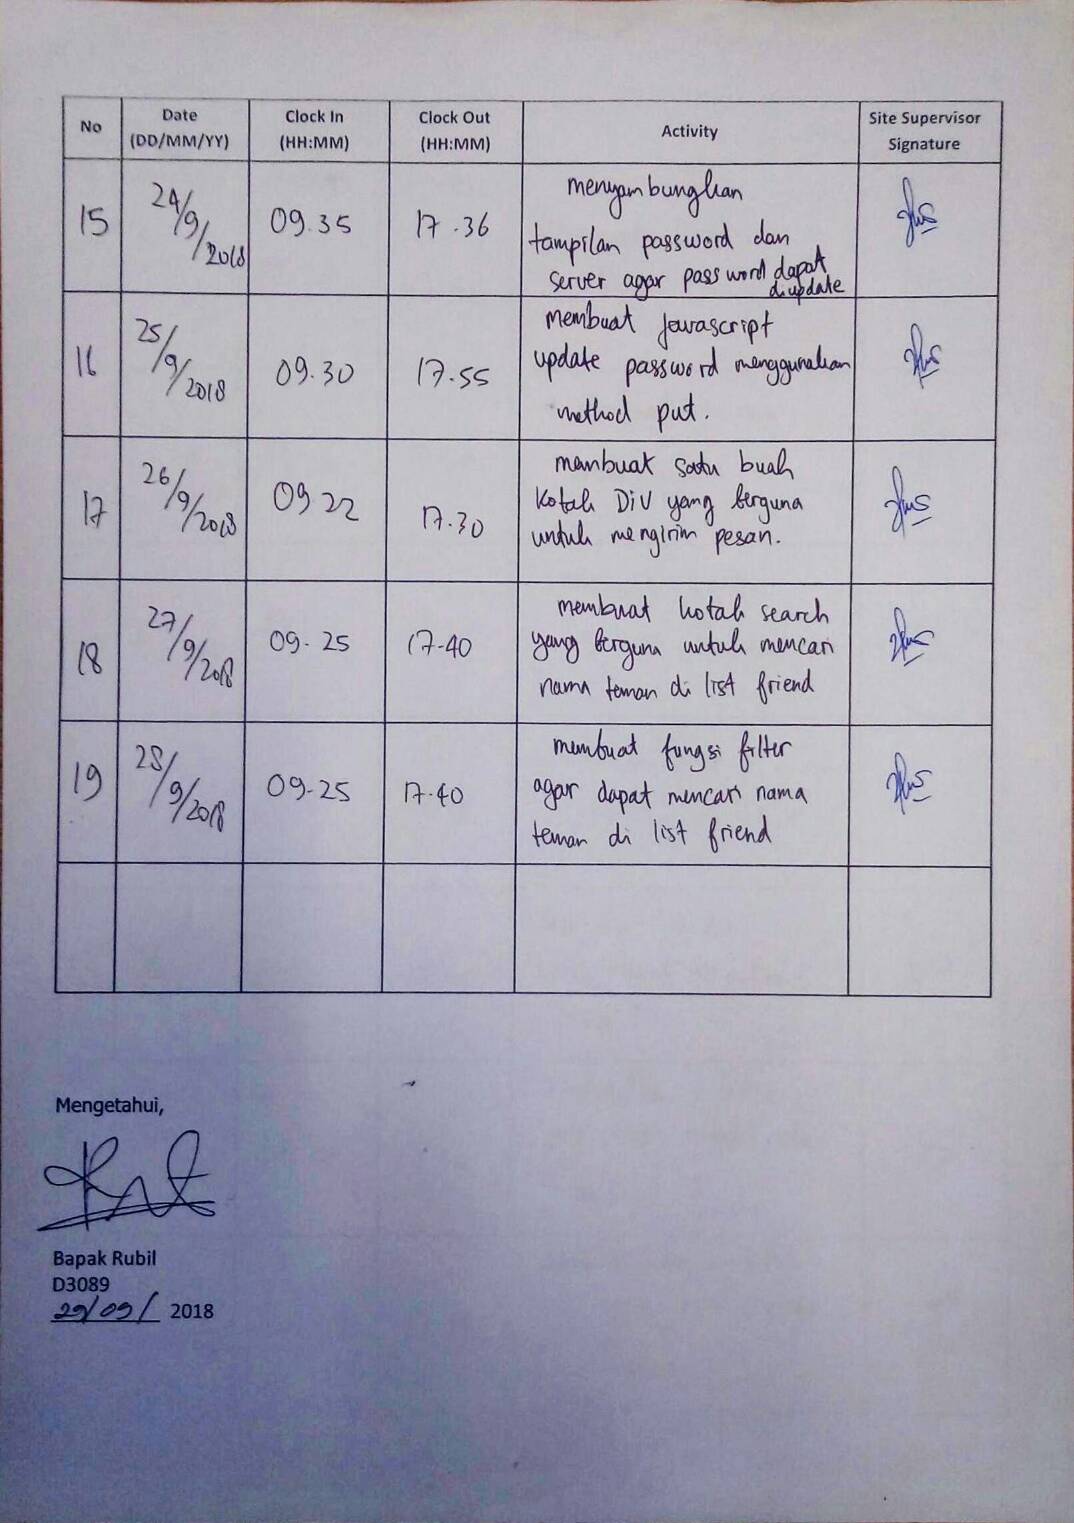 No
Date
(DD/MM/YY)
Clock In
(HH:MM)
Clock Out
(HH:MM)
Activity
Site Supervisor
Signature
15
24/9/2018
09.35
17.36
menyambungkan
tampilan password dan
server agar password dapat
diupdate
16
25/9/2018
09.30
17.55
membuat javascript
update password menggunakan
method put.
17
26/9/2018
09 22
17.30
membuat satu buah
kotak DIV yang berguna
untuk mengirim pesan.
18
27/9/2018
09.25
17.40
membuat kotak search
yang berguna untuk mencari
nama teman di list friend
19
28/9/2018
09.25
17.40
membuat fungsi filter
agar dapat mencari nama
teman di list friend
Mengetahui,
Bapak Rubil
D3089
29/09/ 2018